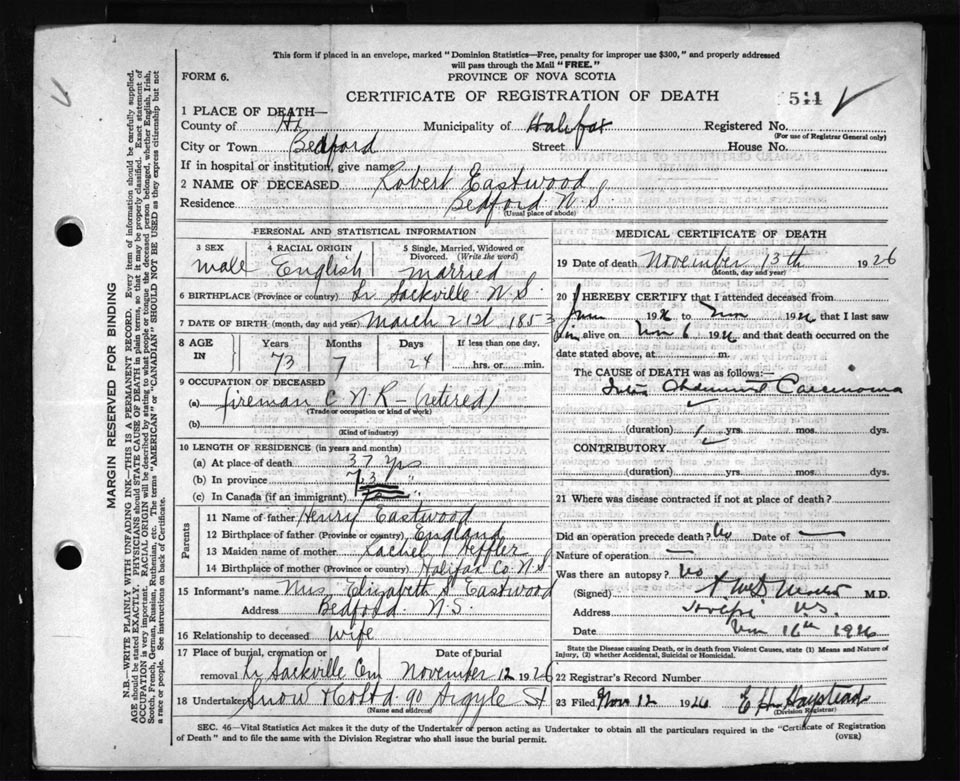 This form if placed in an envelope, marked "Dominion Statistics—Free, penalty for improper use $300," and properly addressed
will pass through the Mail "FREE."
FORM 6.
PROVINCE OF NOVA SCOTIA
CERTIFICATE OF REGISTRATION OF DEATH
511
1 PLACE OF DEATH—
County of Hx Municipality of Halifax Registered No.
(For use of Registrar General only)
City or Town Bedford Street House No.
If in hospital or institution, give name
2 NAME OF DECEASED Robert Eastwood
Residence Bedford N.S.
(Usual place of abode)
PERSONAL AND STATISTICAL INFORMATION
3 SEX male
4 RACIAL ORIGIN English
5 Single, Married, Widowed or Divorced. (Write the word) married
6 BIRTHPLACE (Province or country) Lr Sackville N.S.
7 DATE OF BIRTH (month, day and year) March 21st 1853
8 AGE IN Years Months Days If less than one day,
73 7 24 hrs. or min.
9 OCCUPATION OF DECEASED
(a) fireman C N R – (retired)
(Trade or occupation or kind of work)
(b)
(Kind of industry)
10 LENGTH OF RESIDENCE (in years and months)
(a) At place of death 37 yrs
(b) In province 73 "
(c) In Canada (if an immigrant)
Parents
11 Name of father Henry Eastwood
12 Birthplace of father (Province or country) England
13 Maiden name of mother Rachel Heffler
14 Birthplace of mother (Province or country) Halifax Co. N.S.
15 Informant's name Mrs Elizabeth S Eastwood
Address Bedford N.S.
16 Relationship to deceased wife
17 Place of burial, cremation or removal Lr Sackville Cem
Date of burial November 12 1926
18 Undertaker Snow & Co Ltd 90 Argyle St
(Name and address)
MEDICAL CERTIFICATE OF DEATH
19 Date of death November 13th 1926
(Month, day and year)
20 I HEREBY CERTIFY that I attended deceased from
June 1926 to Nov 1926 that I last saw
him alive on Nov 6 1926 and that death occurred on the
date stated above, at m.
The CAUSE OF DEATH was as follows:—
Carcinoma
(duration) 1 yrs. mos. dys.
CONTRIBUTORY
(duration) yrs. mos. dys.
21 Where was disease contracted if not at place of death?
Did an operation precede death? No Date of —
Nature of operation —
Was there an autopsy? No
(Signed) M.D.
Address N.S.
Date Nov 16th 1926
State the Disease causing Death, or in death from Violent Causes, state (1) Means and Nature of
Injury, (2) whether Accidental, Suicidal or Homicidal.
22 Registrar's Record Number
23 Filed Nov 12 1926 E H Haystead
(Division Registrar)
SEC. 46—Vital Statistics Act makes it the duty of the Undertaker or person acting as Undertaker to obtain all the particulars required in the "Certificate of Registration
of Death" and to file the same with the Division Registrar who shall issue the burial permit.
(OVER)
MARGIN RESERVED FOR BINDING
N.B.—WRITE PLAINLY WITH UNFADING INK—THIS IS A PERMANENT RECORD. Every item of information should be carefully supplied.
AGE should be stated EXACTLY. PHYSICIANS should STATE CAUSE OF DEATH in plain terms, so that it may be properly classified. Exact statement of
OCCUPATION is very important. RACIAL ORIGIN will be described by stating to what people or tongue the deceased person belonged, whether English, Irish,
Scotch, French, German, Russian, Ruthenian, etc. The terms "AMERICAN" or "CANADIAN" SHOULD NOT BE USED as they express citizenship but not
a race or people. See instructions on back of Certificate.